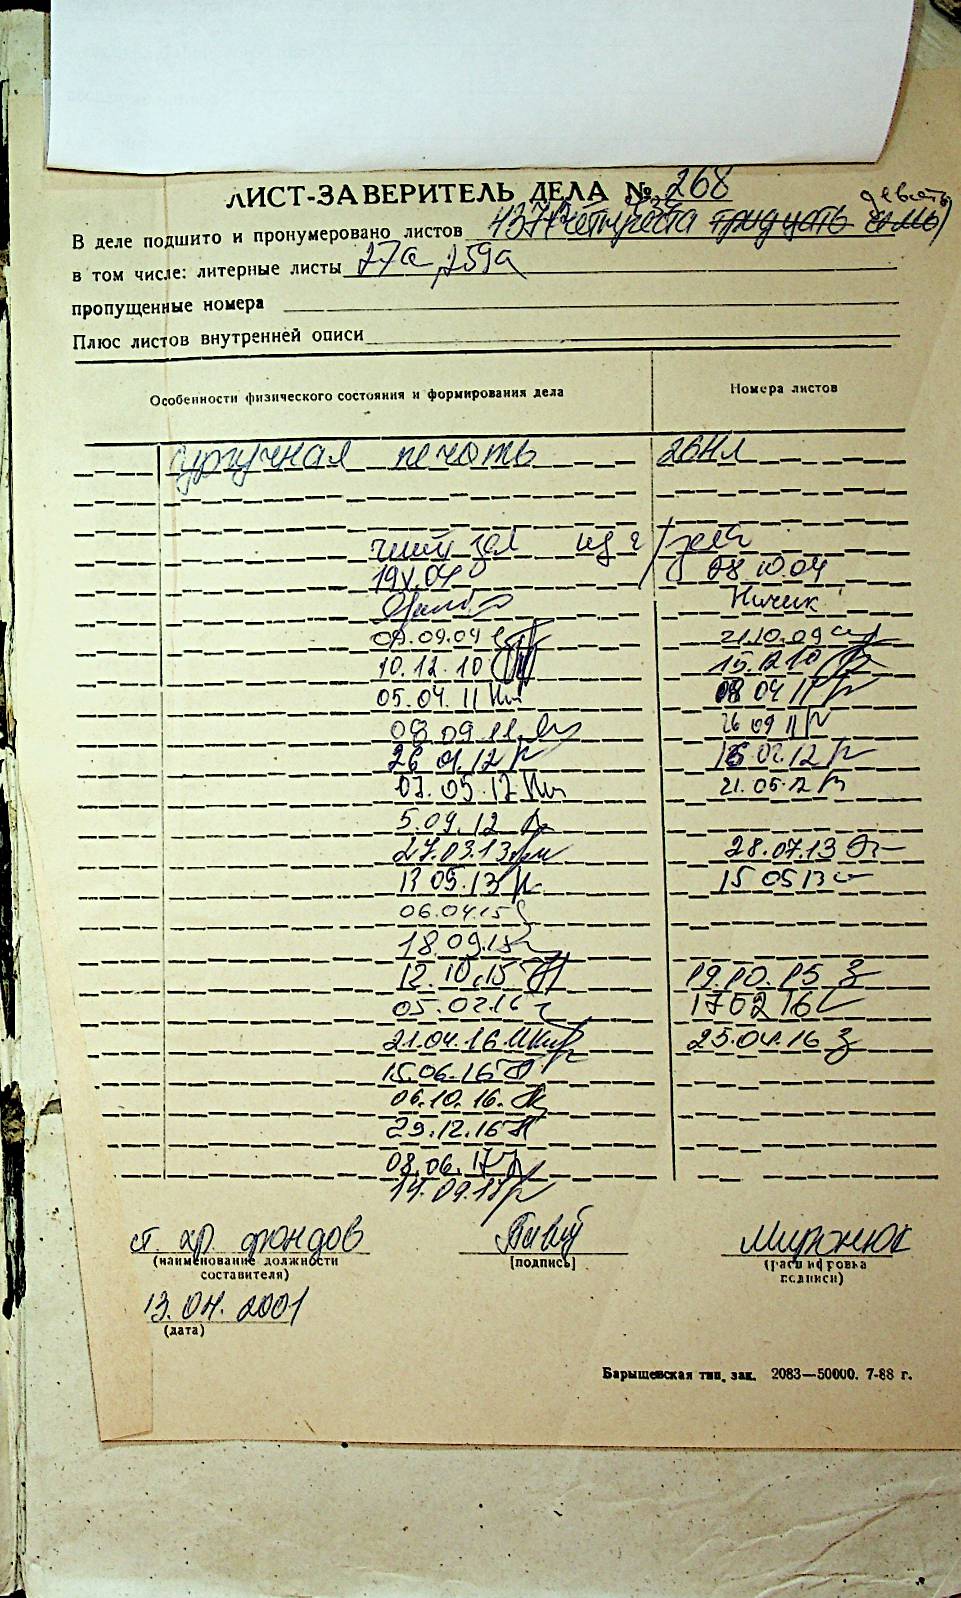 ЛИСТ-ЗАВЕРИТЕЛЬ ДЕЛА № 268
В деле подшито и пронумеровано листов 437 четыреста тридцать семь девять
в том числе: литерные листы 27а, 259а
пропущенные номера
Плюс листов внутренней описи
Особенности физического состояния и формирования дела Номера листов
сургучная печать
чит зал
19 V.04 08 10.04
09.09.09 21.10.09
10.12.10 15.12.10
05.04.11 08 04 11
09 09 11 26 09 11
26 01.12 16.02.12
03.05.12 21.05.12
5.09.12
27.03.13 28.07.13
13 05.13 15 05 13
06.04.15
18.09.15
12.10.15 19.10.15
05.02.16 17 02 16
21.04.16 25.04.16
15.06.16
06.10.16
29.12.16
08.06.17
14.09.17
ст. хр. фондов
(наименование должности составителя) [подпись] (расшифровка подписи)
13.04.2001
(дата)
Барышевская тип. зак. 2083—50000. 7-88 г.